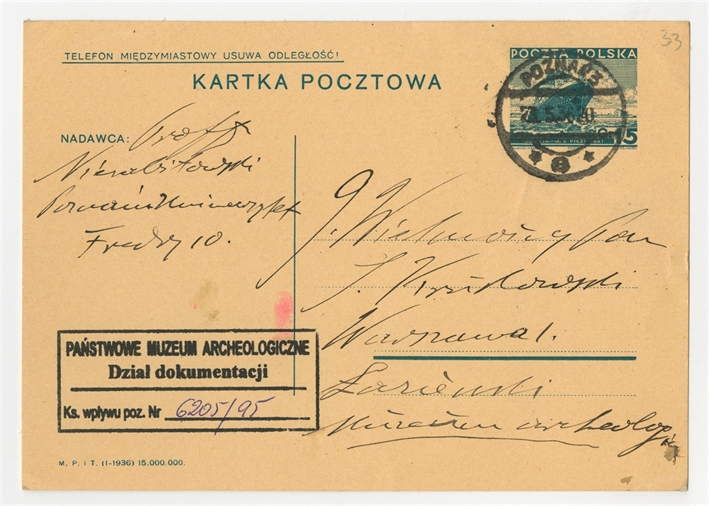 33
TELEFON MIĘDZYMIASTOWY USUWA ODLEGŁOŚĆ!
POCZTA POLSKA
KARTKA POCZTOWA
POZNAŃ 3
15
NADAWCA: Prof.
Niezabitowski
Poznań Uniwersytet
Fredry 10.
J. Wielmożny Pan
Warszawa 1.
Łazienki
Muzeum archeolog.
PAŃSTWOWE MUZEUM ARCHEOLOGICZNE
Dział dokumentacji
Ks. wpływu poz. Nr 6205/95
M. P. i T. (I-1936) 15.000.000.